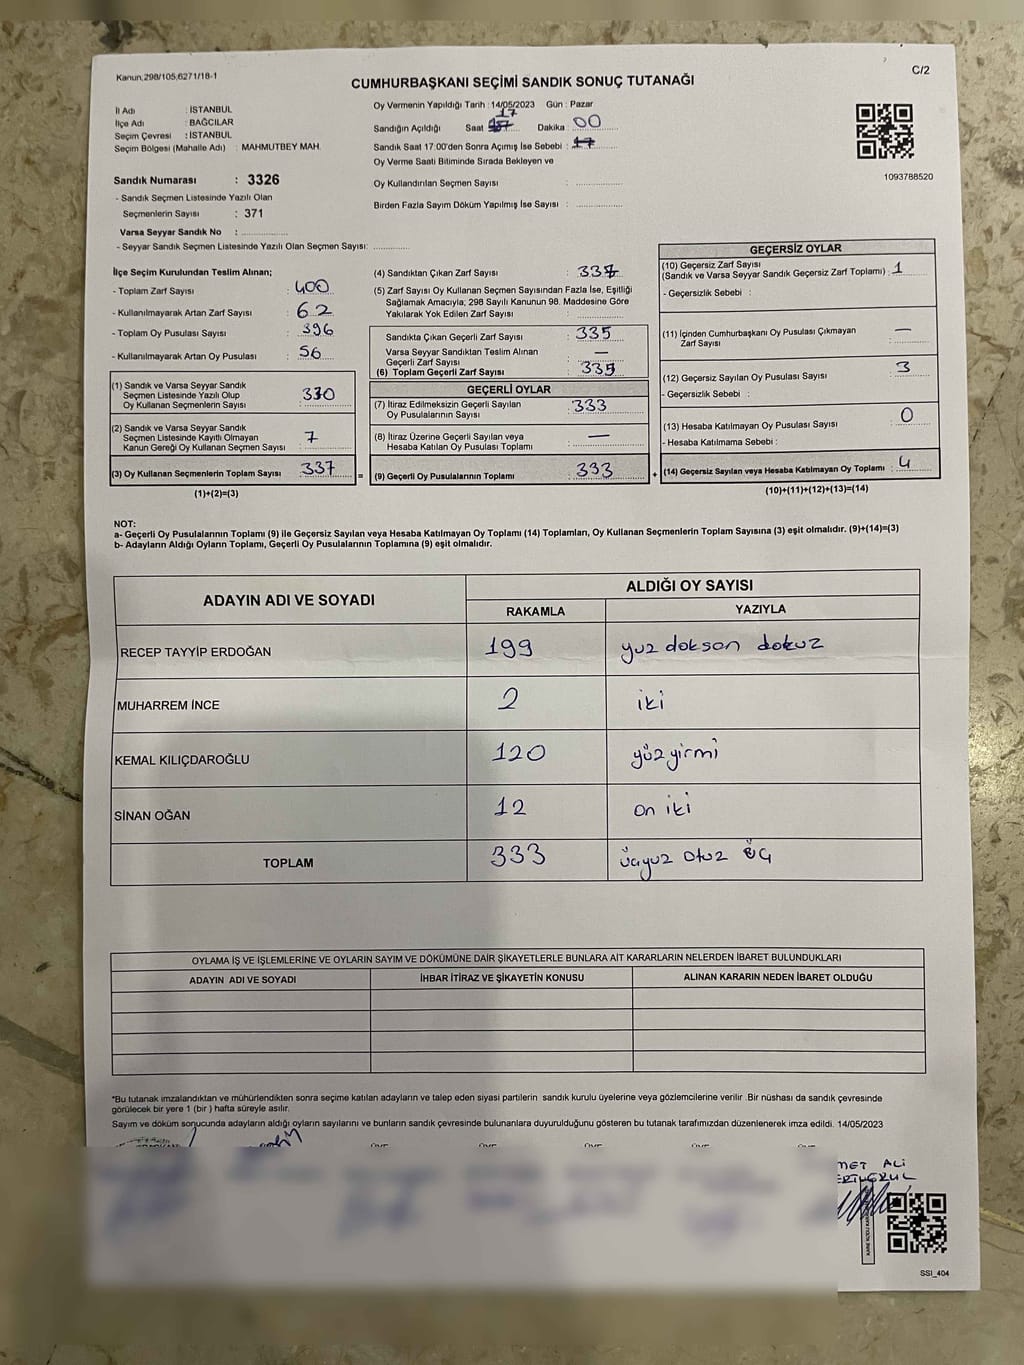 Kanun,298/105,6271/18-1
C/2
CUMHURBAŞKANI SEÇİMİ SANDIK SONUÇ TUTANAĞI
İl Adı : İSTANBUL
İlçe Adı : BAĞCILAR
Seçim Çevresi : İSTANBUL
Seçim Bölgesi (Mahalle Adı) : MAHMUTBEY MAH.
Oy Vermenin Yapıldığı Tarih : 14/05/2023 Gün : Pazar
Sandığın Açıldığı Saat 17 Dakika : 00
Sandık Saat 17:00'den Sonra Açımış İse Sebebi :
Oy Verme Saati Bitiminde Sırada Bekleyen ve
Oy Kullandırılan Seçmen Sayısı :
Birden Fazla Sayım Döküm Yapılmış İse Sayısı :
1093788520
Sandık Numarası : 3326
- Sandık Seçmen Listesinde Yazılı Olan
Seçmenlerin Sayısı : 371
Varsa Seyyar Sandık No :
- Seyyar Sandık Seçmen Listesinde Yazılı Olan Seçmen Sayısı:
İlçe Seçim Kurulundan Teslim Alınan;
- Toplam Zarf Sayısı : 400
- Kullanılmayarak Artan Zarf Sayısı : 62
- Toplam Oy Pusulası Sayısı : 396
- Kullanılmayarak Artan Oy Pusulası : 56
(1) Sandık ve Varsa Seyyar Sandık
Seçmen Listesinde Yazılı Olup
Oy Kullanan Seçmenlerin Sayısı : 330
(2) Sandık ve Varsa Seyyar Sandık
Seçmen Listesinde Kayıtlı Olmayan
Kanun Gereği Oy Kullanan Seçmen Sayısı : 7
(3) Oy Kullanan Seçmenlerin Toplam Sayısı : 337 =
(1)+(2)=(3)
(4) Sandıktan Çıkan Zarf Sayısı :
(5) Zarf Sayısı Oy Kullanan Seçmen Sayısından Fazla İse, Eşitliği
Sağlamak Amacıyla, 298 Sayılı Kanunun 98. Maddesine Göre
Yakılarak Yok Edilen Zarf Sayısı :
Sandıkta Çıkan Geçerli Zarf Sayısı : 335
Varsa Seyyar Sandıktan Teslim Alınan
Geçerli Zarf Sayısı : —
(6) Toplam Geçerli Zarf Sayısı : 335
GEÇERLİ OYLAR
(7) İtiraz Edilmeksizin Geçerli Sayılan
Oy Pusulalarının Sayısı : 333
(8) İtiraz Üzerine Geçerli Sayılan veya
Hesaba Katılan Oy Pusulası Toplamı : —
(9) Geçerli Oy Pusulalarının Toplamı : 333 +
GEÇERSİZ OYLAR
(10) Geçersiz Zarf Sayısı
(Sandık ve Varsa Seyyar Sandık Geçersiz Zarf Toplamı) : 1
- Geçersizlik Sebebi :
(11) İçinden Cumhurbaşkanı Oy Pusulası Çıkmayan
Zarf Sayısı : —
(12) Geçersiz Sayılan Oy Pusulası Sayısı : 3
- Geçersizlik Sebebi :
(13) Hesaba Katılmayan Oy Pusulası Sayısı : 0
- Hesaba Katılmama Sebebi :
(14) Geçersiz Sayılan veya Hesaba Katılmayan Oy Toplamı : 4
(10)+(11)+(12)+(13)=(14)
NOT:
a- Geçerli Oy Pusulalarının Toplamı (9) ile Geçersiz Sayılan veya Hesaba Katılmayan Oy Toplamı (14) Toplamları, Oy Kullanan Seçmenlerin Toplam Sayısına (3) eşit olmalıdır. (9)+(14)=(3)
b- Adayların Aldığı Oyların Toplamı, Geçerli Oy Pusulalarının Toplamına (9) eşit olmalıdır.
ADAYIN ADI VE SOYADI ALDIĞI OY SAYISI
RAKAMLA YAZIYLA
RECEP TAYYİP ERDOĞAN 199 yuz doksan dokuz
MUHARREM İNCE 2 iki
KEMAL KILIÇDAROĞLU 120 yüzyirmi
SİNAN OĞAN 12 on iki
TOPLAM 333 üçyuz otuz üç
OYLAMA İŞ VE İŞLEMLERİNE VE OYLARIN SAYIM VE DÖKÜMÜNE DAİR ŞİKAYETLERLE BUNLARA AİT KARARLARIN NELERDEN İBARET BULUNDUKLARI
ADAYIN ADI VE SOYADI İHBAR İTİRAZ VE ŞİKAYETİN KONUSU ALINAN KARARIN NEDEN İBARET OLDUĞU
*Bu tutanak imzalandıktan ve mühürlendikten sonra seçime katılan adayların ve talep eden siyasi partilerin sandık kurulu üyelerine veya gözlemcilerine verilir .Bir nüshası da sandık çevresinde
görülecek bir yere 1 (bir ) hafta süreyle asılır.
Sayım ve döküm sonucunda adayların aldığı oyların sayılarını ve bunların sandık çevresinde bulunanlara duyurulduğunu gösteren bu tutanak tarafımızdan düzenlenerek imza edildi. 14/05/2023
ALİ
SSI_404